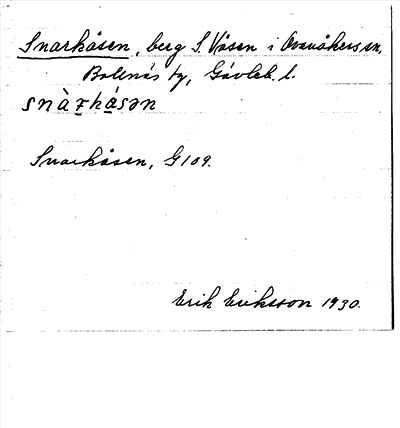 Snarkåsen, berg S. Våsen i Ovanåkers sn,
Bollnäs tg, Gävleb. l.
snàrkåsən
Snarkåsen, G 109.
Erik Eriksson 1930.